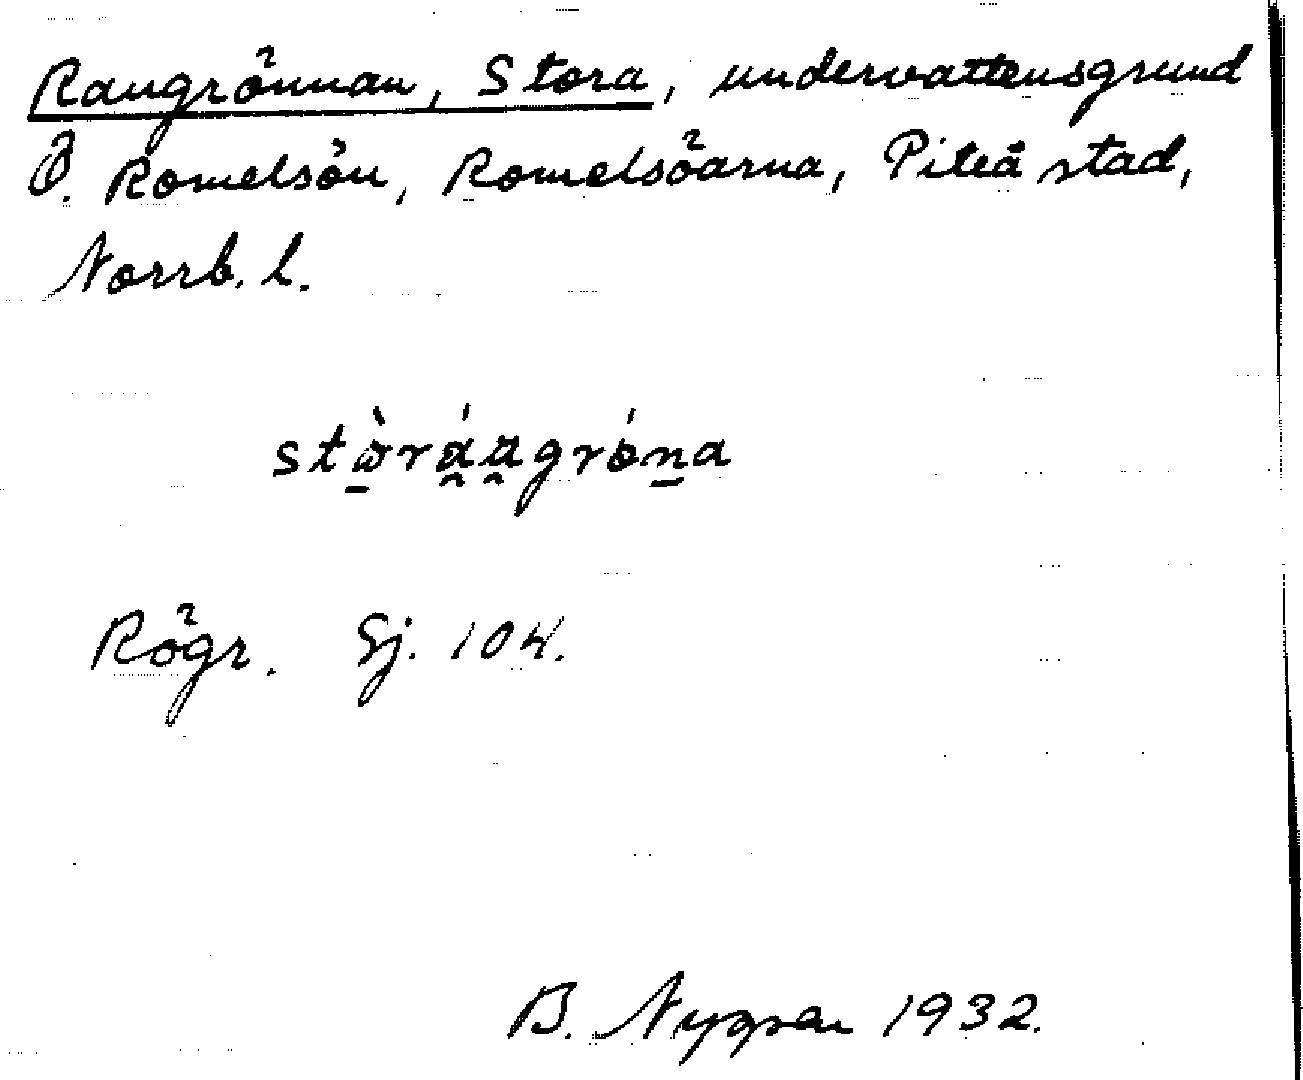 Raugrönnan, Stora, undervattensgrund
Ö. Romelsön, Romelsöarna, Piteå stad,
Norrb. l.
Rögr. Sj. 104.
B. Nygren 1932.